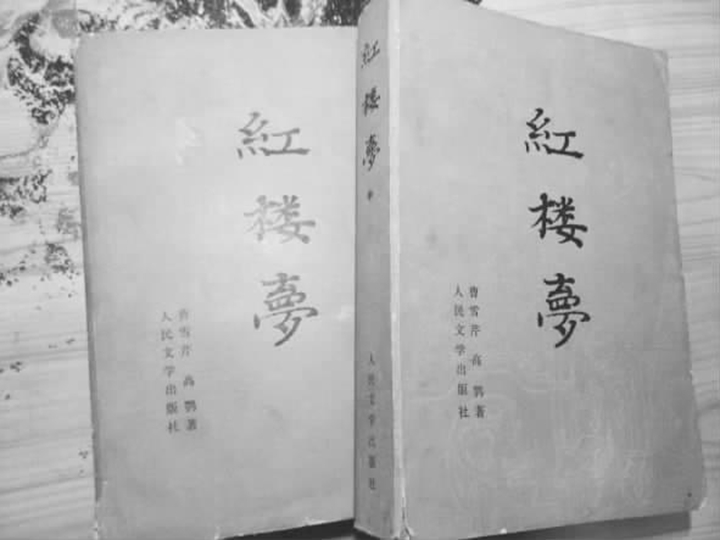 紅楼夢
曹雪芹 高鹗著
人民文学出版社
紅楼夢 中
人民文学出版社
紅楼夢
曹雪芹 高鹗著
人民文学出版社